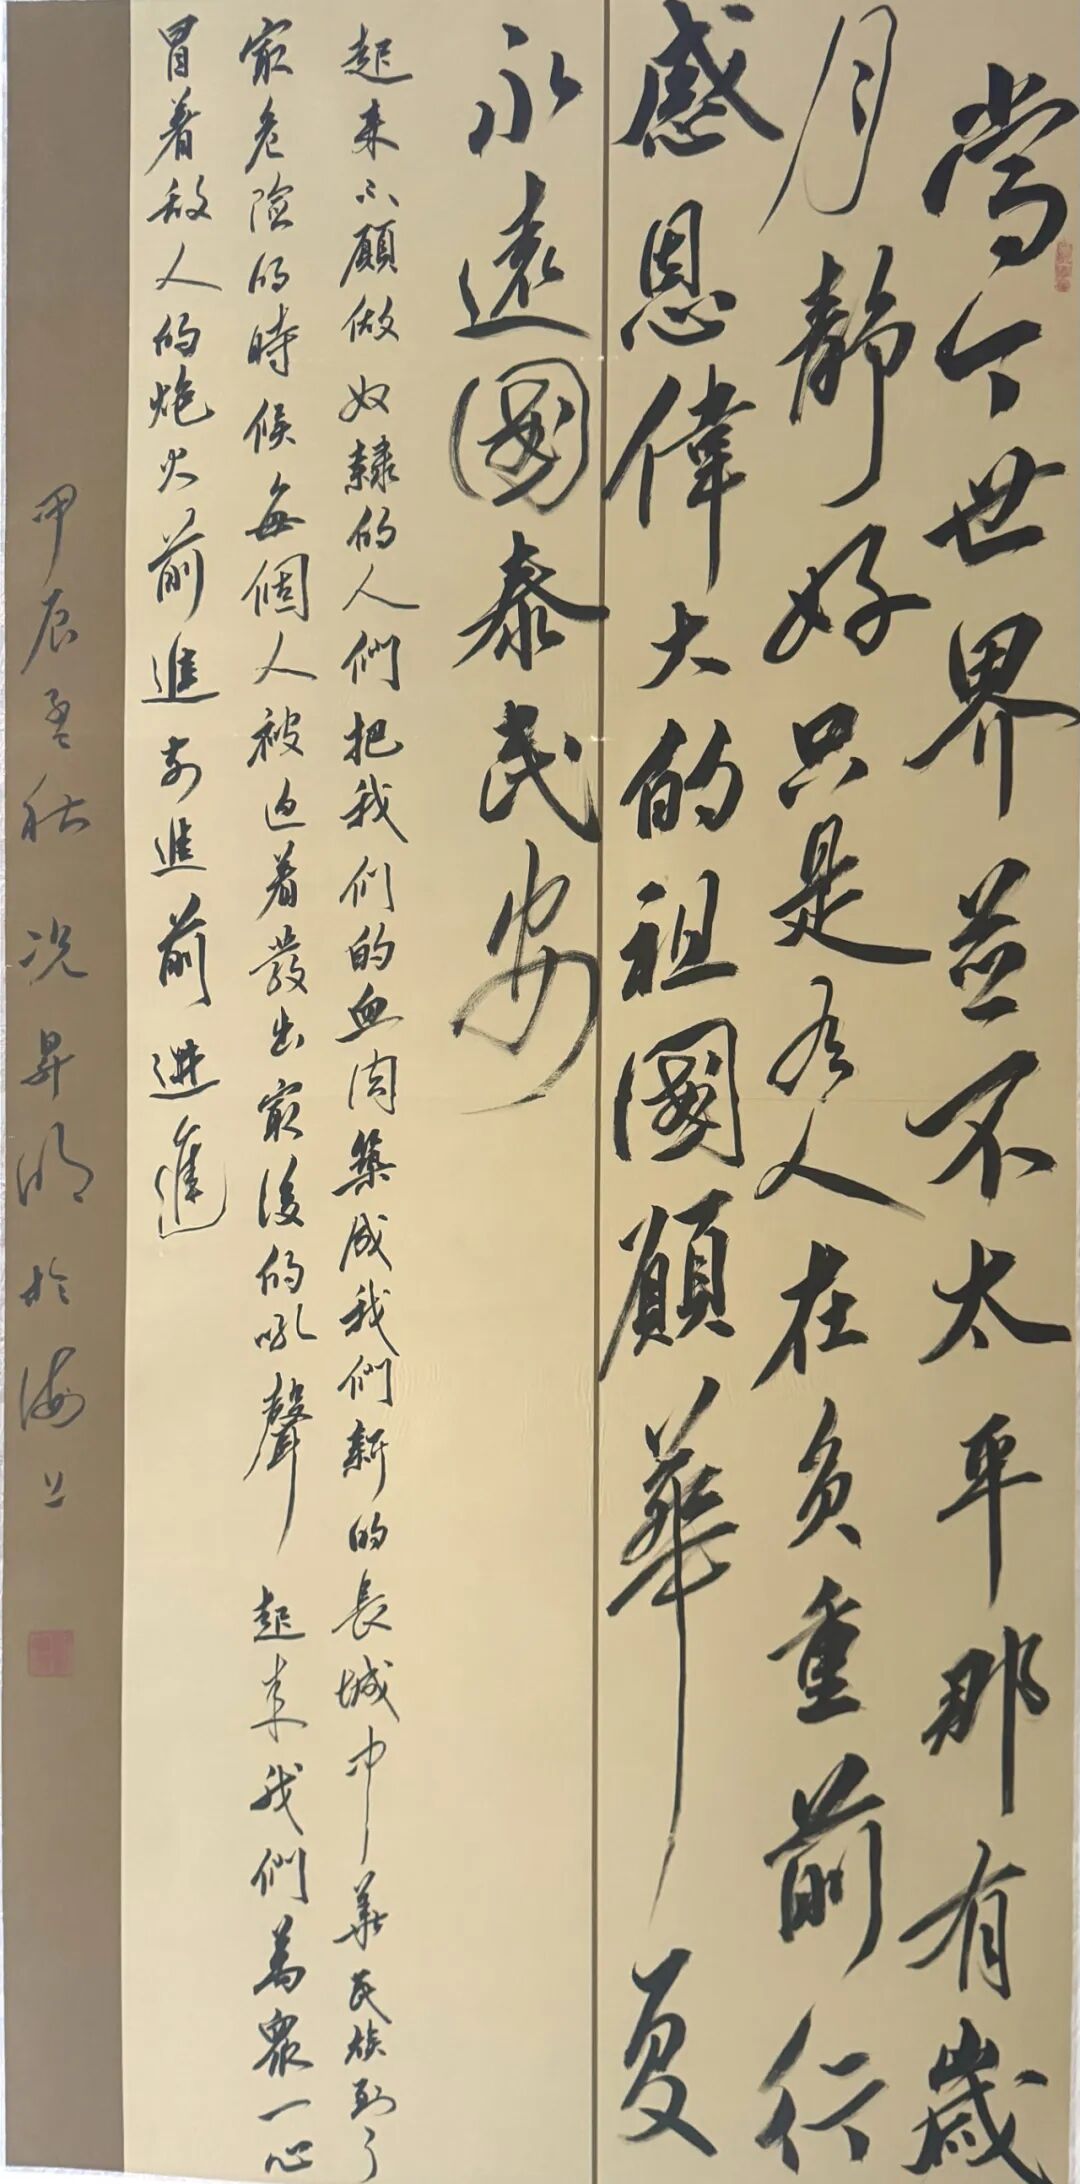 當今世界並不太平那有歲
月靜好只是有人在負重前行
感恩偉大的祖國願華夏
永遠國泰民安
起来不願做奴隸的人們把我們的血肉築成我們新的長城中華民族到了
最危險的時候每個人被迫着發出最後的吼聲 起来我們萬眾一心
冒着敌人的炮火前進前進前進進
甲辰孟秋况昇明於海上